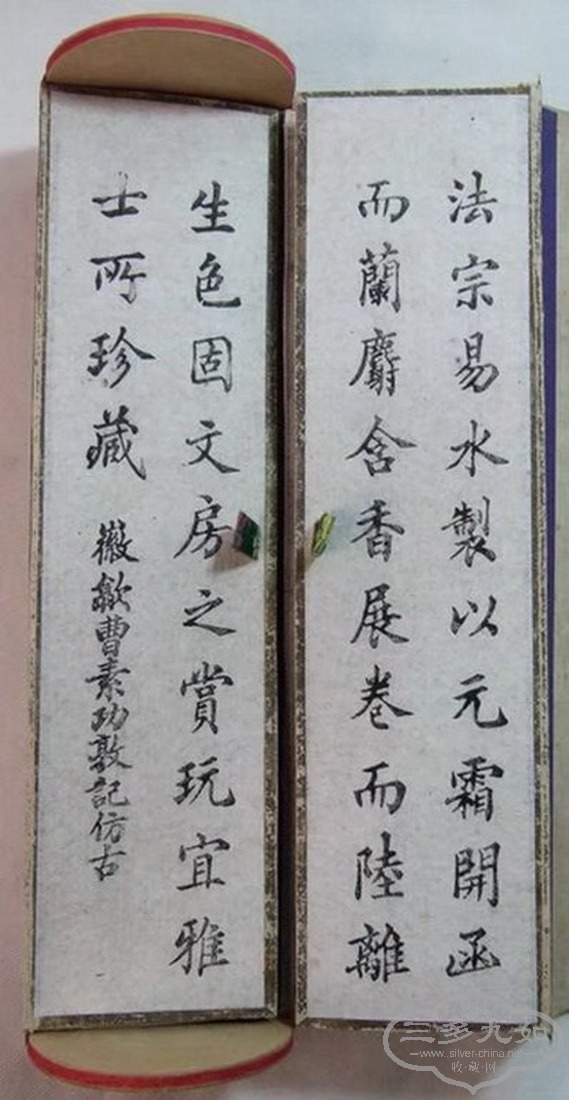 法宗易水製以元霜開函
而蘭麝含香展卷而陸離
生色固文房之賞玩宜雅
士所珍藏
徽歙曹素功敦記仿古
三多九如
www.silver-china.net
收·藏·网